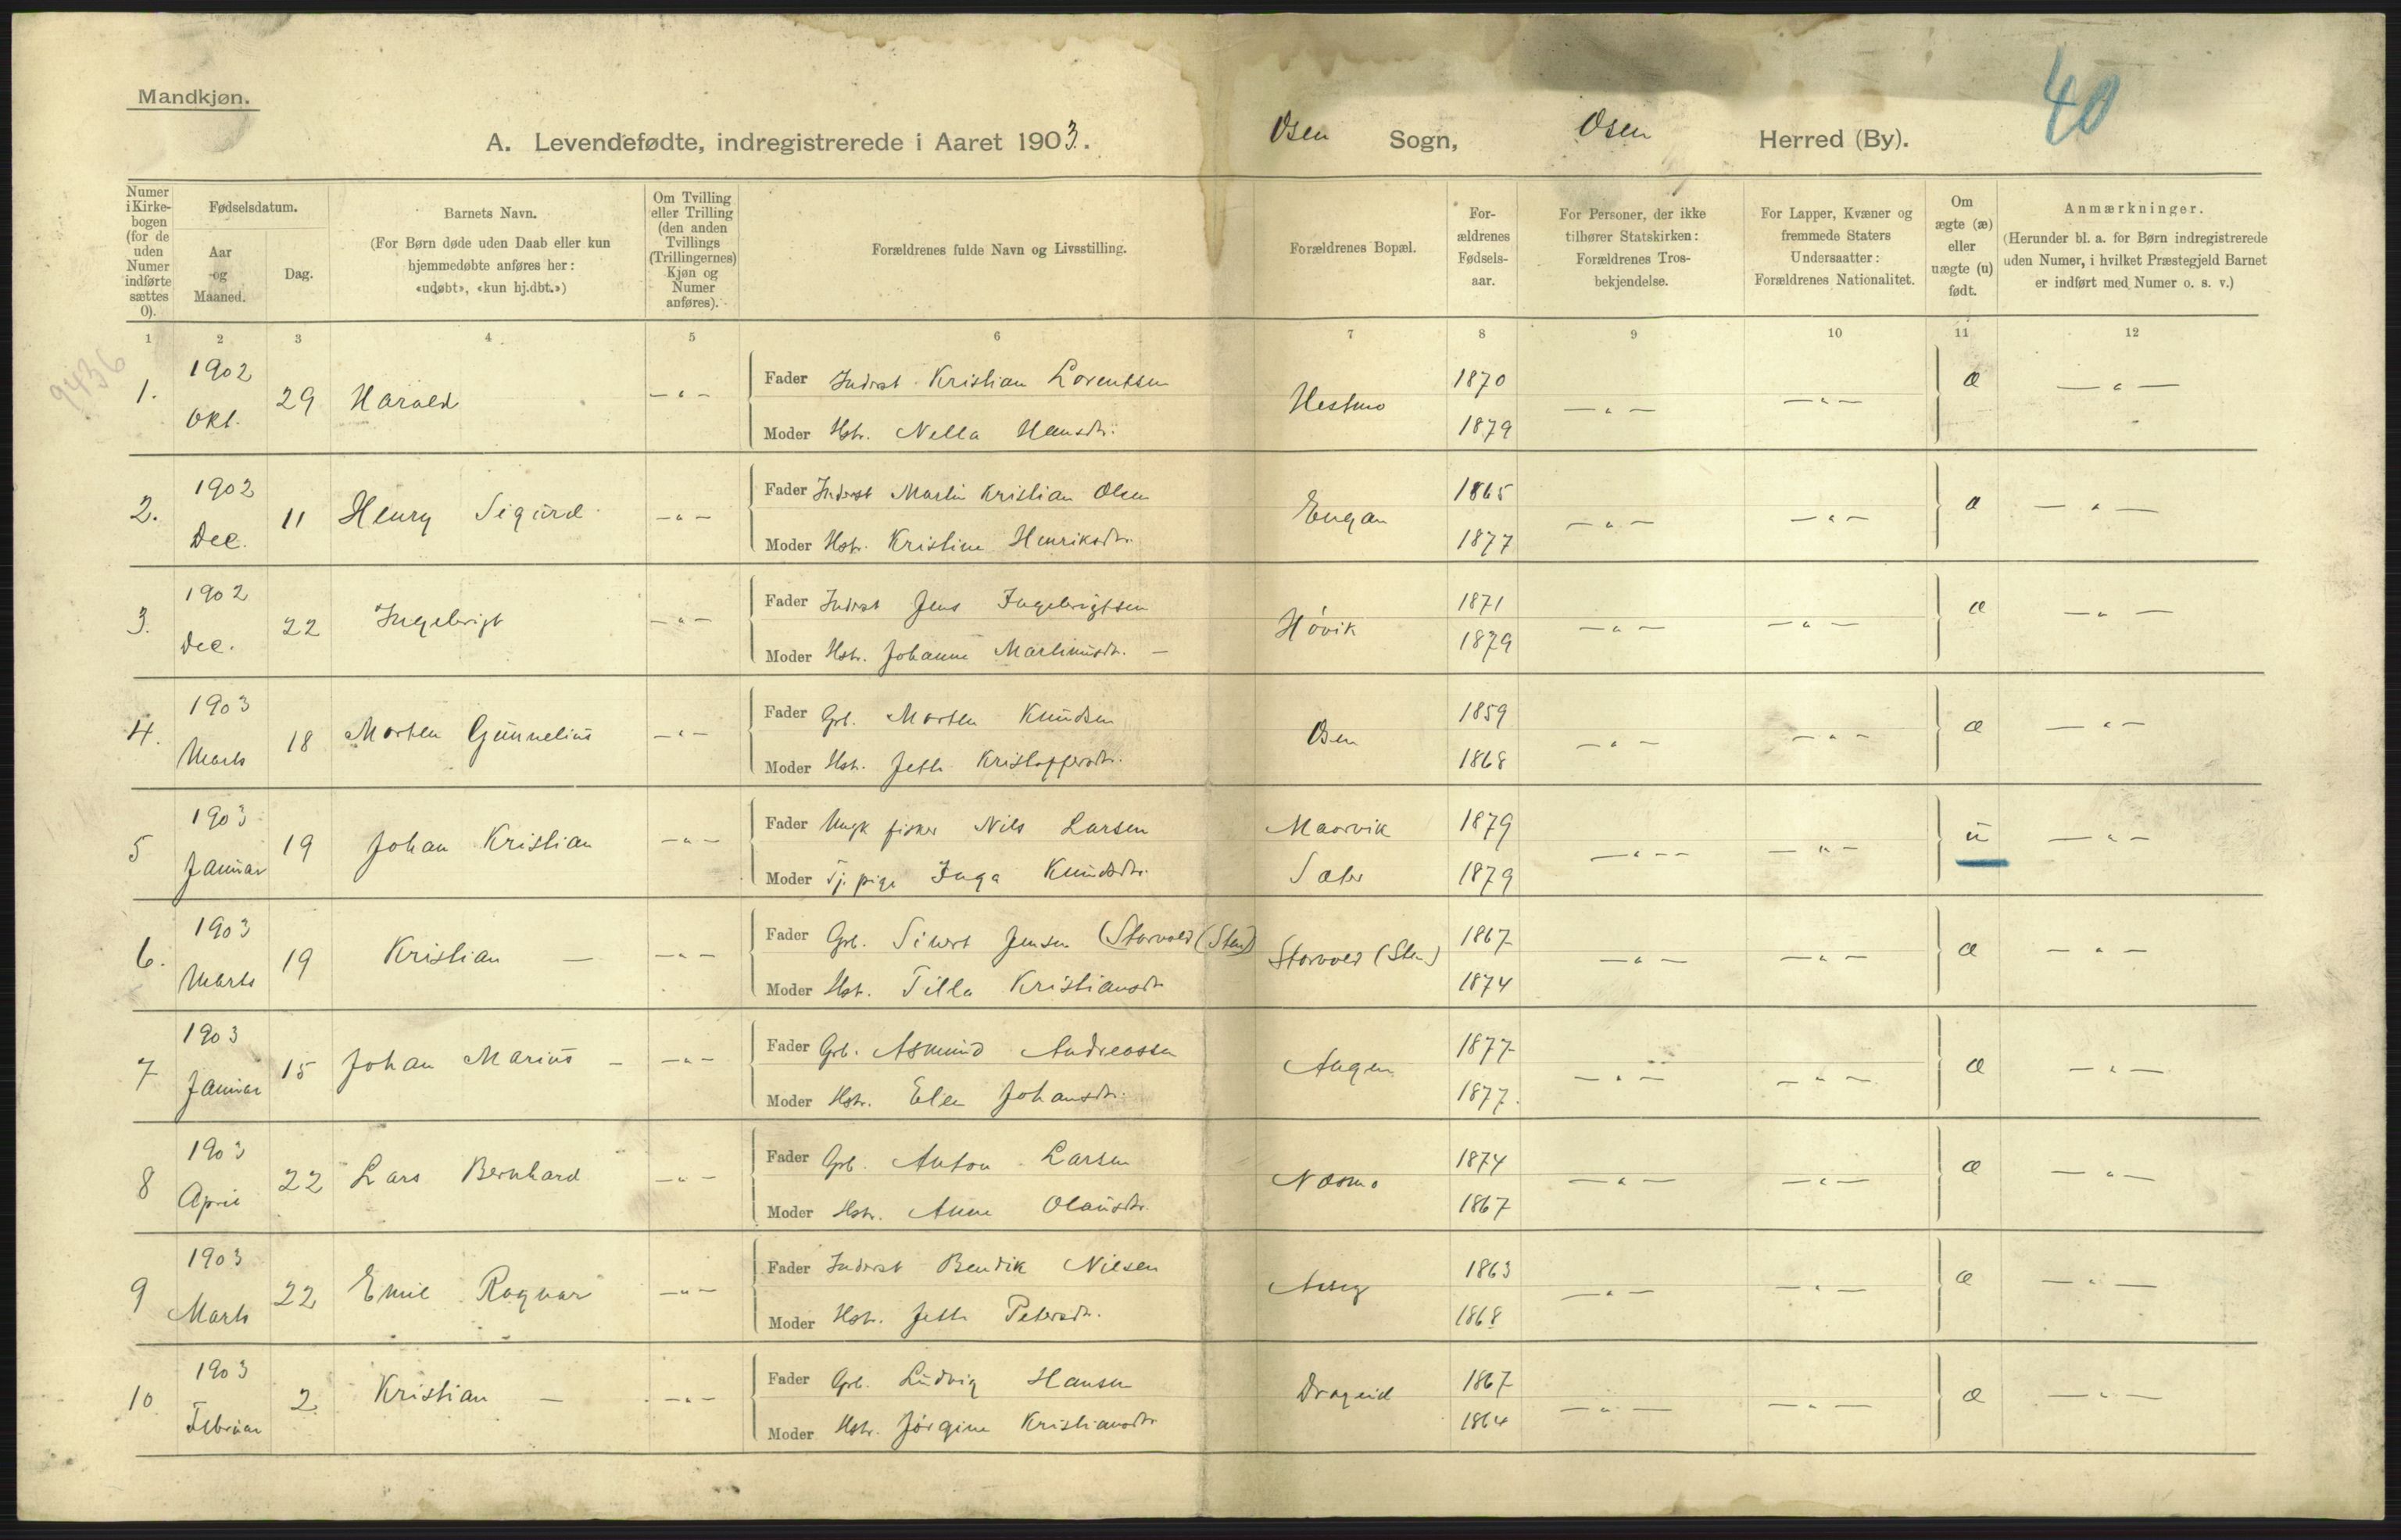 Mandkjøn.
40
A. Levendefødte, indregistrerede i Aaret 1903. Osen Sogn, Osen Herred (By).
Numer i Kirkebogen (for de uden Numer indførte sættes 0).
Fødselsdatum.
Aar og Maaned.
Dag.
Barnets Navn.
(For Børn døde uden Daab eller kun hjemmedøbte anføres her: «udøbt», «kun hj.dbt.»)
Om Tvilling eller Trilling (den anden Tvillings (Trillingernes) Kjøn og Numer anføres).
Forældrenes fulde Navn og Livsstilling.
Forældrenes Bopæl.
Forældrenes Fødselsaar.
For Personer, der ikke tilhører Statskirken: Forældrenes Trosbekjendelse.
For Lapper, Kvæner og fremmede Staters Undersaatter: Forældrenes Nationalitet.
Om ægte (æ) eller uægte (u) født.
Anmærkninger.
(Herunder bl. a. for Børn indregistrerede uden Numer, i hvilket Præstegjeld Barnet er indført med Numer o. s. v.)
1 2 3 4 5 6 7 8 9 10 11 12
9436
1. 1902 Okt. 29 Harald — " —
Fader Inderst Kristian Lorentsen Hestmo 1870 — " — — " — æ — " —
Moder Hstr. Nella Hansdtr. 1879
2. 1902 Dec. 11 Henry Sigurd — " —
Fader Inderst Martin Kristian Olsen Engan 1865 — " — — " — æ — " —
Moder Hstr. Kristine Henriksdtr. 1877
3. 1902 Dec. 22 Ingebrigt — " —
Fader Inderst Jens Ingebrigtsen Hövik 1871 — " — — " — æ — " —
Moder Hstr. Johanne Martinusdtr. — 1879
4. 1903 Marts 18 Morten Gunnelius — " —
Fader Grb. Morten Knudsen Osen 1859 — " — — " — æ — " —
Moder Hstr. Jette Kristoffersdtr. 1868
5 1903 Januar 19 Johan Kristian — " —
Fader Ungk fisker Nils Larsen Maarvik 1879 — " — — — " — u — " —
Moder Tj. pige Inga Knudsdtr. Sæter 1879
6. 1903 Marts 19 Kristian — — " —
Fader Grb. Sivert Jensen (Storvold (Sten)) Storvold (Sten) 1867 — " — — " — æ — " —
Moder Hstr. Tilla Kristiansdtr 1874
7 1903 Januar 15 Johan Marius — — " —
Fader Grb. Asmund Andreassen Angen 1877 — " — — " — æ — " —
Moder Hstr. Elen Johansdtr. 1877.
8 1903 April 22 Lars Bernhard — " —
Fader Grb. Anton Larsen Næsmo 1874 — " — — " — æ — " —
Moder Hstr. Anne Olausdtr. 1867
9 1903 Marts 22 Emil Ragnar — " —
Fader Inderst Bendik Nilsen 1863 — " — — " — æ — " —
Moder Hstr. Jette Petersdtr. 1868
10 1903 Februar 2. Kristian — — " —
Fader Grb. Ludvig Hansen Drageid 1867 — " — — " — æ — " —
Moder Hstr. Jörgine Kristiansdtr 1864